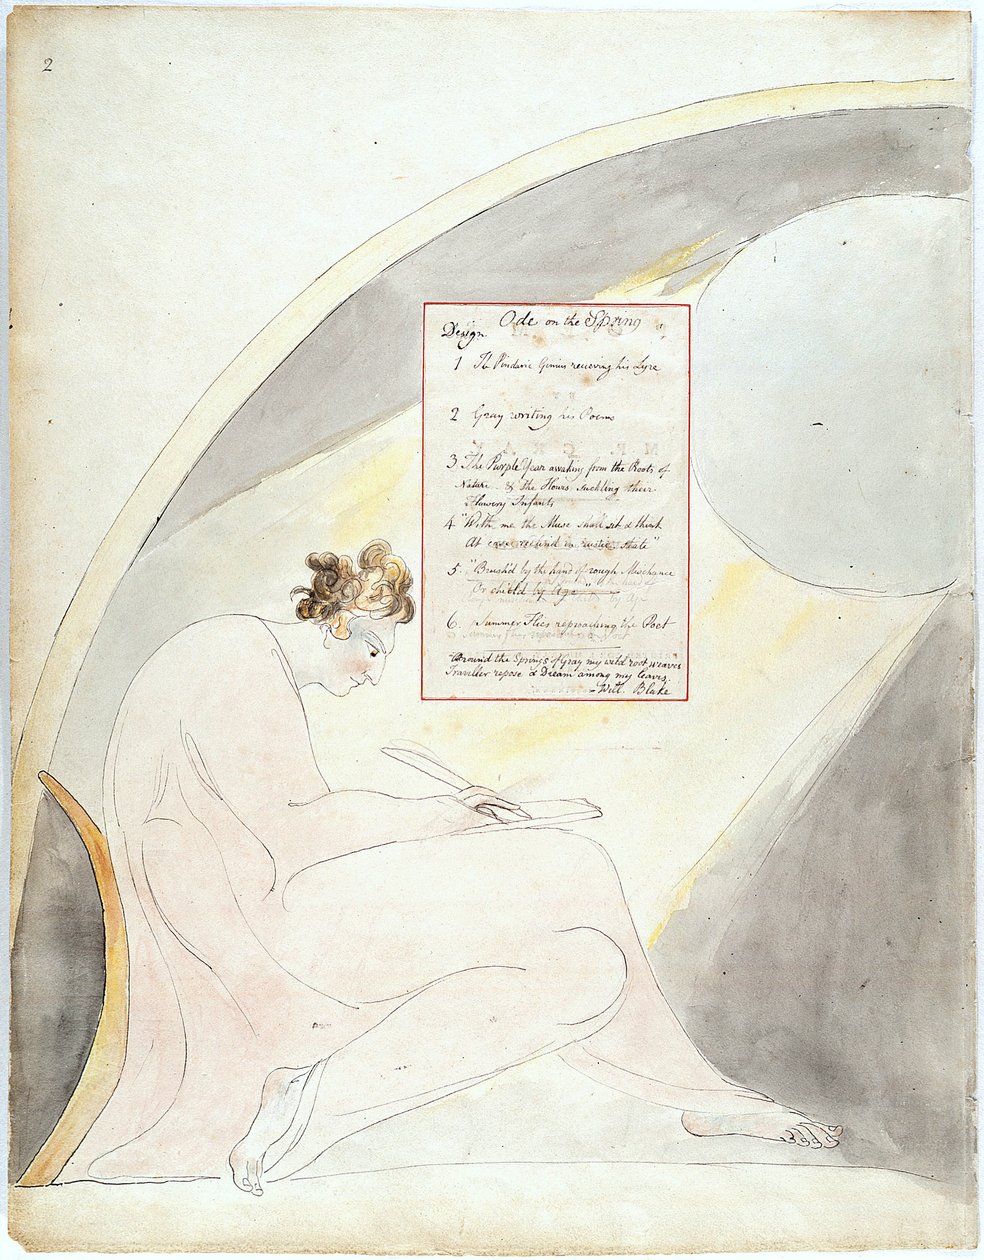 2
Ode on the Spring
Design.
1 The Pindaric Genius recieving his Lyre
2 Gray writing his Poems
3. The Purple Year awaking from the Roots of
Nature. & The Hours suckling their
Flowery Infants
4 "With me the Muse shall sit & think
At ease reclind in rustic state"
5. "Brush'd by the hand of rough Mischance
Or chill'd by Age"
6. Summer Flies reproaching the Poet
Around the Springs of Gray my wild root weaves
Traveller repose & Dream among my leaves.
- Will. Blake